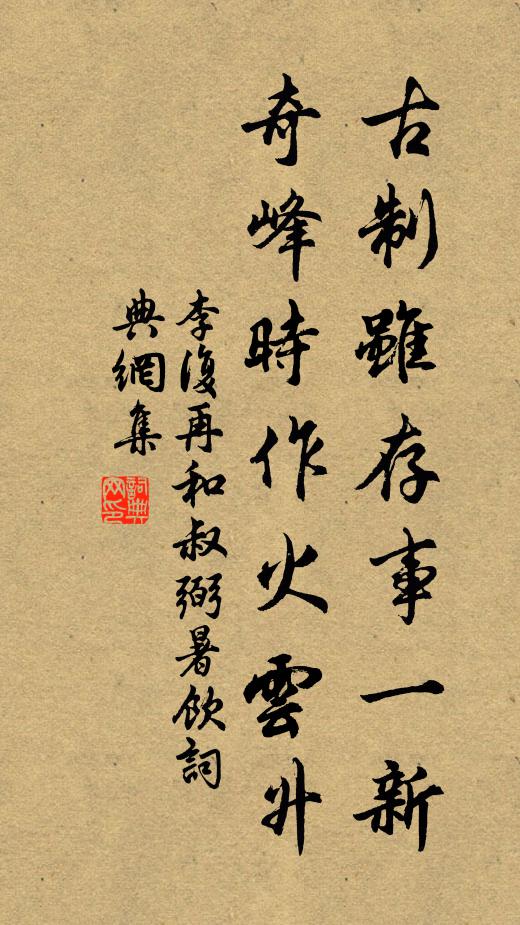 古制雖存事一新
奇峰時作火雲升
李復再和叔弼暑飲詞
典網集
詞典網印